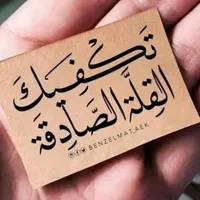 تكفيك
القِلّة الصّادِقة
BENZELMAT_AEK